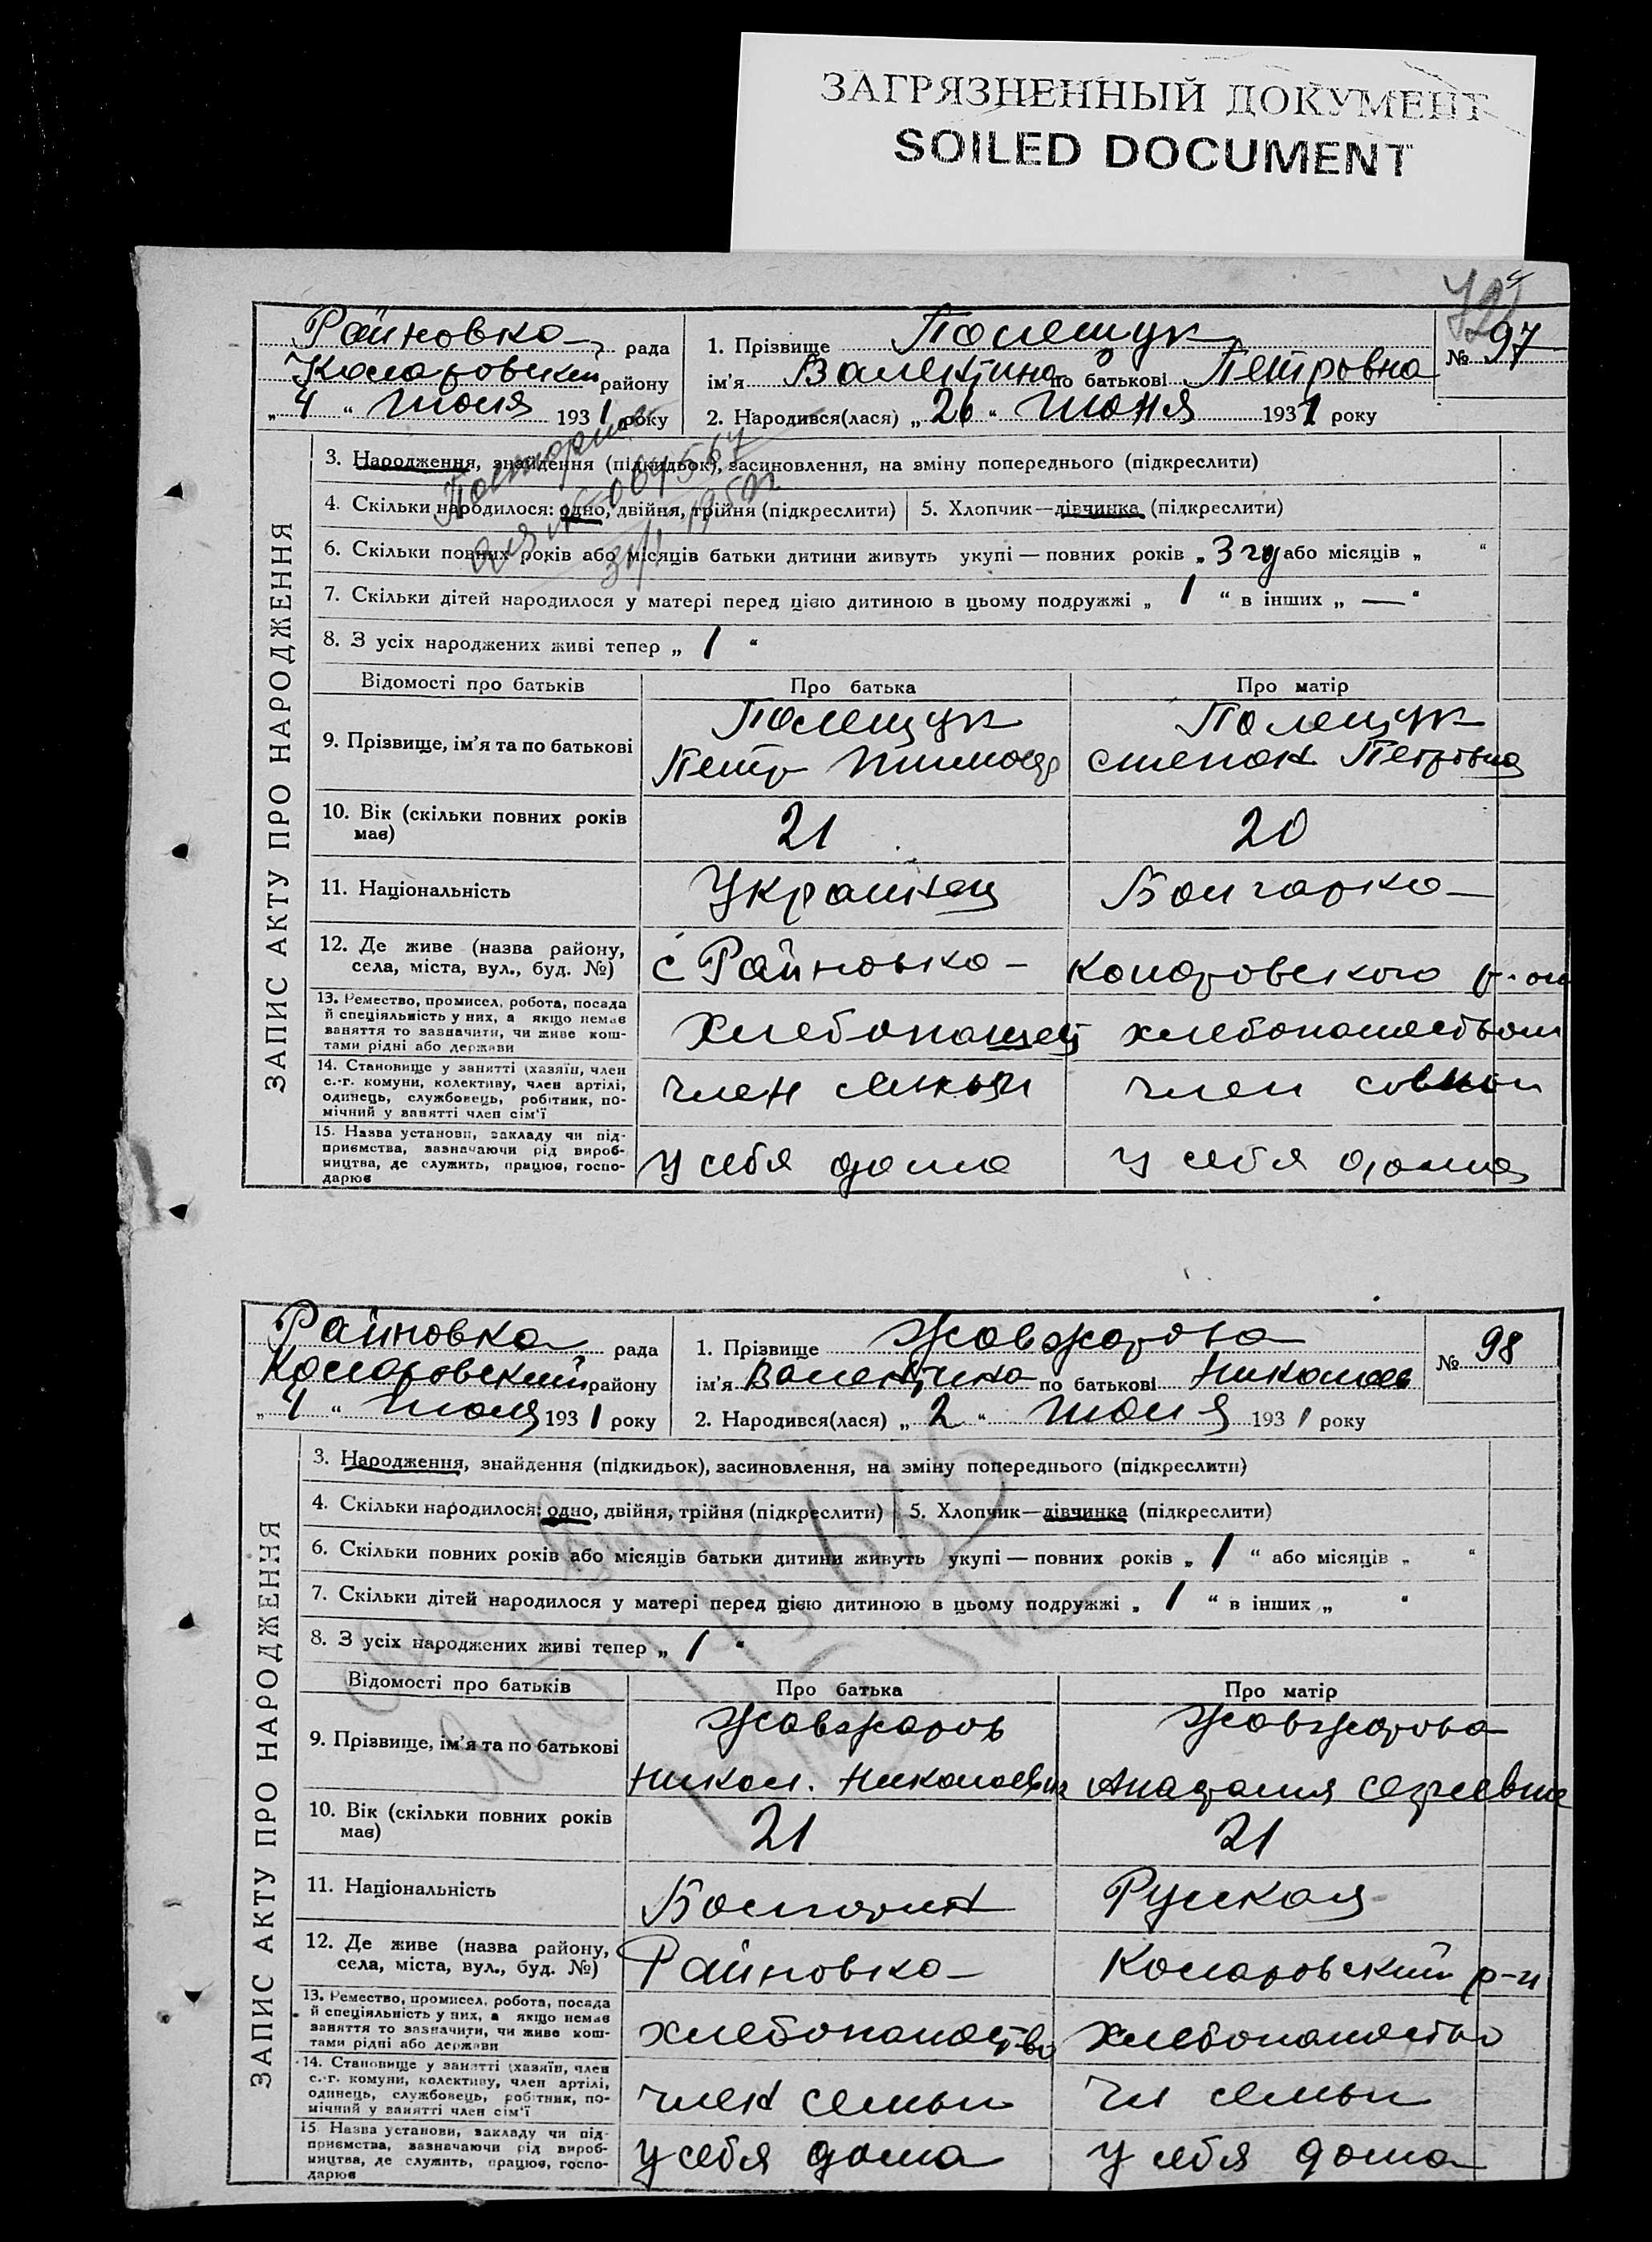 ЗАГРЯЗНЕННЫЙ ДОКУМЕНТ
SOILED DOCUMENT
ЗАПИС АКТУ ПРО НАРОДЖЕННЯ
Райновка рада
району
„ 4 “ Июля 1931 року
1. Прізвище Полещук
ім'я Валентина по батькові Петровна
2. Народився(лася) „ 26 “ Июня 1931 року
№ 97
3. Народження, знайдення (підкидьок), засиновлення, на зміну попереднього (підкреслити)
4. Скільки народилося: одно, двійня, трійня (підкреслити) 5. Хлопчик—дівчинка (підкреслити)
6. Скільки повних років або місяців батьки дитини живуть укупі — повних років „ 3 або місяців „ “
7. Скільки дітей народилося у матері перед цією дитиною в цьому подружжі „ 1 “ в інших „ — “
8. З усіх народжених живі тепер „ 1 “
Відомості про батьків Про батька Про матір
9. Прізвище, ім'я та по батькові
Полещук Полещук
Петр Петровна
10. Вік (скільки повних років має) 21 20
11. Національність Украинец Болгарка
12. Де живе (назва району, села, міста, вул., буд. №) с Райновка
13. Ремество, промисел, робота, посада й спеціяльність у них, а якщо немає заняття то зазначити, чи живе коштами рідні або держави
14. Становище у занятті (хазяїн, член с.-г. комуни, колективу, член артілі, одинець, службовець, робітник, помічний у занятті член сім'ї член член
15. Назва установи, закладу чи підприємства, зазначаючи рід виробництва, де служить, працює, господарює у себя дома у себя дома
ЗАПИС АКТУ ПРО НАРОДЖЕННЯ
Райновка рада
району
„ 4 “ Июля 1931 року
1. Прізвище Жовжарова
ім'я Валентина по батькові Николаев
2. Народився(лася) „ 2 “ Июля 1931 року
№ 98
3. Народження, знайдення (підкидьок), засиновлення, на зміну попереднього (підкреслити)
4. Скільки народилося: одно, двійня, трійня (підкреслити) 5. Хлопчик—дівчинка (підкреслити)
6. Скільки повних років або місяців батьки дитини живуть укупі — повних років „ 1 “ або місяців „ “
7. Скільки дітей народилося у матері перед цією дитиною в цьому подружжі „ 1 “ в інших „ “
8. З усіх народжених живі тепер „ 1 “
Відомості про батьків Про батька Про матір
9. Прізвище, ім'я та по батькові
Жовжаров Жовжарова
Никол. Николаевич
10. Вік (скільки повних років має) 21 21
11. Національність Болгарин Руская
12. Де живе (назва району, села, міста, вул., буд. №) Райновка р-н
13. Ремество, промисел, робота, посада й спеціяльність у них, а якщо немає заняття то зазначити, чи живе коштами рідні або держави хлебопашество хлебопашество
14. Становище у занятті (хазяїн, член с.-г. комуни, колективу, член артілі, одинець, службовець, робітник, помічний у занятті член сім'ї член семьи чл семьи
15. Назва установи, закладу чи підприємства, зазначаючи рід виробництва, де служить, працює, господарює у себя дома у себя дома